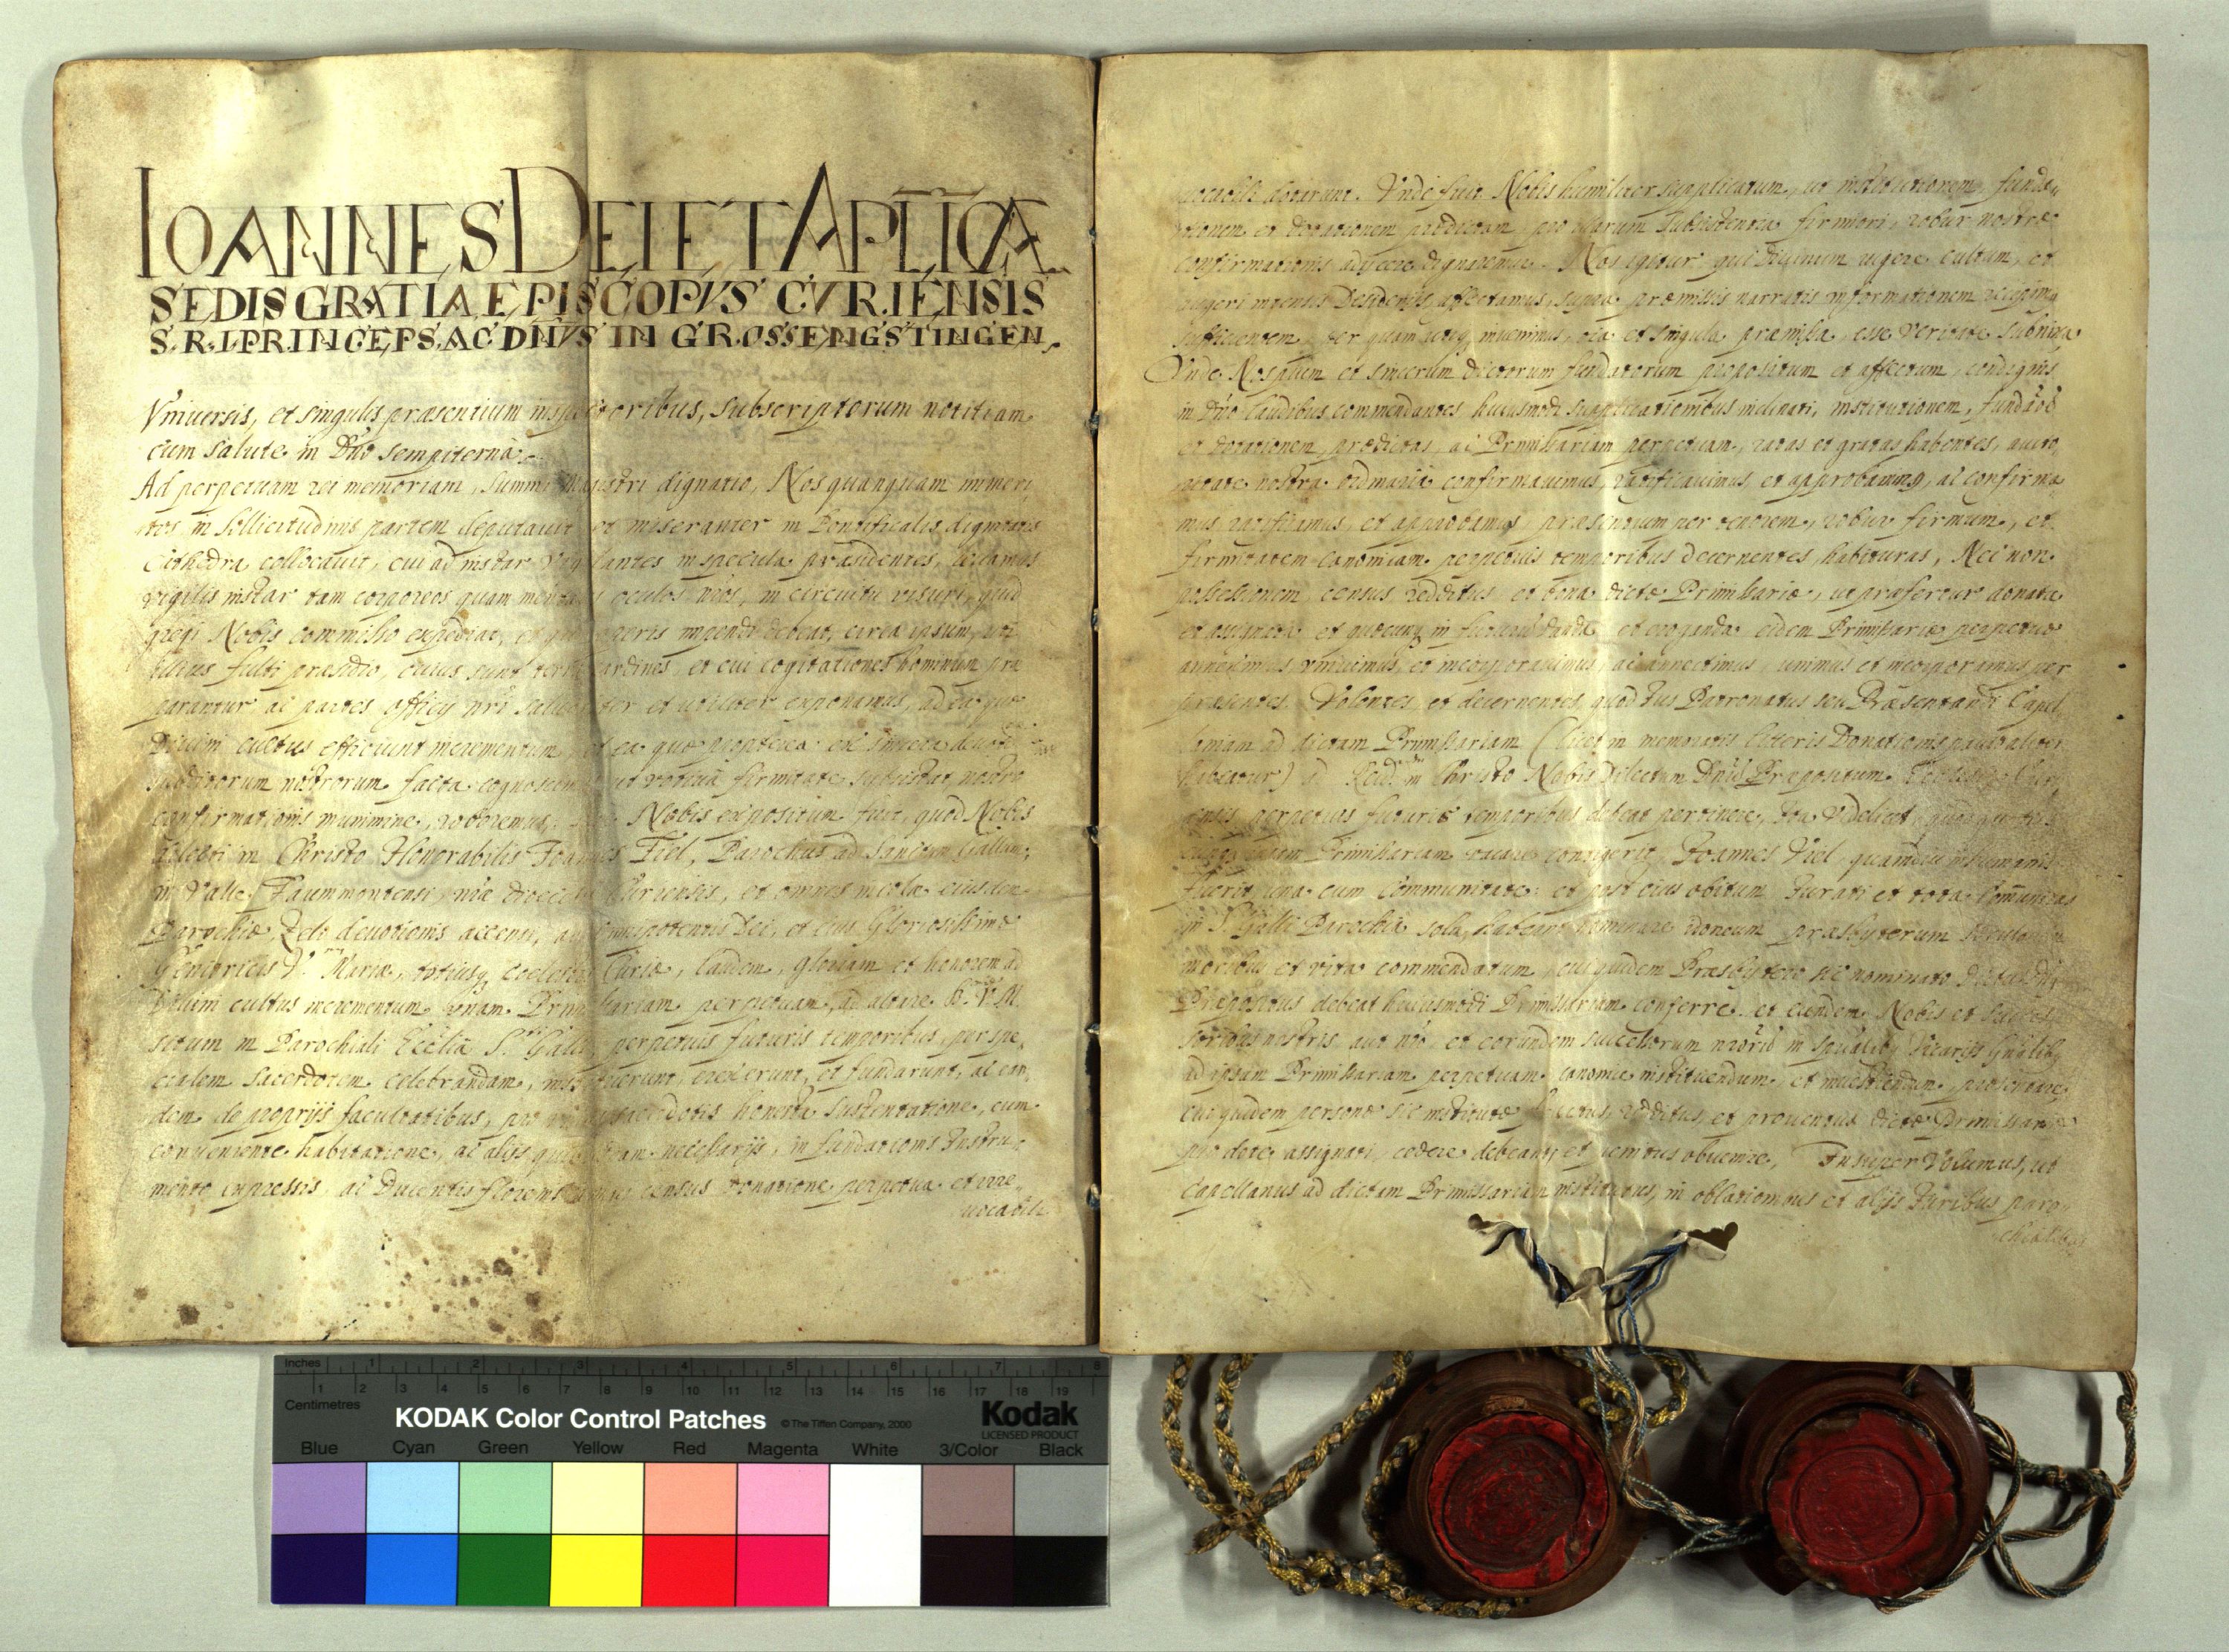 IOANNES DEI ET APLICÆ
SEDIS GRATIA EPISCOPVS CVRIENSIS
S.R.I. PRINCEPS. AC DNVS IN GROSSENGSTINGEN.
Vniuersis, et singulis præsentium inspectoribus, subscriptorum notitiam
cum salute in Dño sempiterna.
Ad perpetuam rei memoriam, Summi Magistri dignatio, Nos quanquam immeri
tos in sollicitudinis partem deputauit et miseranter in Pontificalis dignitatis
Cathedra collocauit, cui ad instar vigilantes in specula præsidentes, leuamus
vigilis instar tam corporeos quam mentales oculos nr̃os, in circuitu visuri, quid
gregi Nobis commisso expediat, et quid operis impendi debeat, circa ipsum, ut
illius fulti præsidio, cuius sunt terræ cardines, et cui cogitationes hominum præ
parantur ac partes officij nr̃i salubriter et utiliter exponamus, ad ea quæ
Diuini cultus efficiunt incrementum, et ea quæ propterea ex sincera deuotione
subditorum nostrorum facta cognoscimus ut votiua firmitate subsistat nostro
confirmationis munimine, roboremus. Nobis expositum fuit, quod Nobis
dilecti in Christo Honorabilis Joannes Fiel, Parochus ad Sanctum Gallum,
in Valle Taummontensi, nr̃æ dioecesis Curiensis, et omnes incolæ eiusdem
Parochiæ, Zelo deuotionis accensi, ad omnipotentis Dei, et eius Gloriosissimæ
Genitricis V. Mariæ, totiusq̃ coelestis Curiæ, laudem, gloriam et honorem ac
Diuini cultus incrementum unam Primissariam perpetuam, ad altare B. V. M.
situm in Parochiali Ecclia S.ti Galli, perpetuis futuris temporibus, per spe,
cialem Sacerdotem celebrandam, instituerunt, erexerunt, et fundarunt, ac ean,
dem de proprijs facultatibus, pro Sacerdotis honesta sustentatione, cum
conueniente habitatione, ac alijs quibusdam necessarijs, in fundationis Instru,
mento expressis, ac Ducentis florenis census donatione perpetua et irre,
uocabili
uocabili dotarunt. Vnde fuit Nobis humiliter supplicatum, ut institutionem, funda,
tionem et dotationem prædictam pro illarum subsistentia firmiori, robur nostræ
confirmationis adijcere dignaremur. Nos igitur qui Diuinum vigere cultum, et
augeri intensis Desiderijs affectamus, supra præmissis narratis informationem recepimus
sufficientem, per quam utiq̃ inuenimus, oĩa et singula præmissa, esse veritate subnixa
Vnde Nos pium et sincerum dictorum fundatorum propositum et affectum, condignis
in Dño laudibus commendantes, huiusmodi supplicationibus inclinati, institutionem, fundãõẽ
et dotationem prædictas, ac Primissariam perpetuam, ratas et gratas habentes, aucto,
ritate nostra ordinaria confirmauimus, ratificauimus et approbauimus, ac confirma
mus ratificamus, et approbamus, præsentium per tenorem, robur firmum, et
firmitatem canonicam perpetuis temporibus decernentes, habituras, Nec non
possessionem, census, redditus, et bona dictæ Primissariæ, ut præfertur donata
et assignata et quæcunq̃ in futurum danda et eroganda eidem Primissariæ perpetuo
anneximus, vniuimus, et incorporauimus, ac annectimus, unimus et incorporamus per
præsentes. Volentes, et decernentes, quod Jus Patronatus seu Præsentandi Capel,
lanum ad dictam Primissariam (licet in memoratis litteris Donationis
habeatur) ad Reu.dum in Christo Nobis Dilectum Dnũ Præpositum Ecclesiæ Curi,
ensis perpetuis futuris temporibus debeat pertinere, ita videlicet,
ipsam Primissariam vacare contigerit, Joannes Viel, quamdiu in humanis
fuerit, una cum Communitate, et post eius obitum Jurati et tota Com̃unitas
in S. Galli Parochia sola, habeant nominare idoneum præsbyterum
moribus et vita commendatum, cui quidem Præsbytero sic nominato dictus Dñs
Præpositus debeat huiusmodi Primissariam conferre, et eundem Nobis et succes
soribus nostris, aut nr̃o et eorundem successorum nr̃orũ in spũalibus Vicarijs Gñalibus
ad ipsam Primissariam perpetuam canonice instituendum et inuestiendum, præsentare,
cui quidem personæ sic institutæ fructus, redditus, et prouentus dictæ Primissariæ
pro dote assignati, cedere debeant, et penitus obuenire, Insuper Volumus, ut
Capellanus ad dictam Primissariam institutus, in oblationibus et alijs Juribus paro
chialibus
Inches 1 2 3 4 5 6 7 8
Centimetres 1 2 3 4 5 6 7 8 9 10 11 12 13 14 15 16 17 18 19
KODAK Color Control Patches © The Tiffen Company, 2000 Kodak
LICENSED PRODUCT
Blue Cyan Green Yellow Red Magenta White 3/Color Black